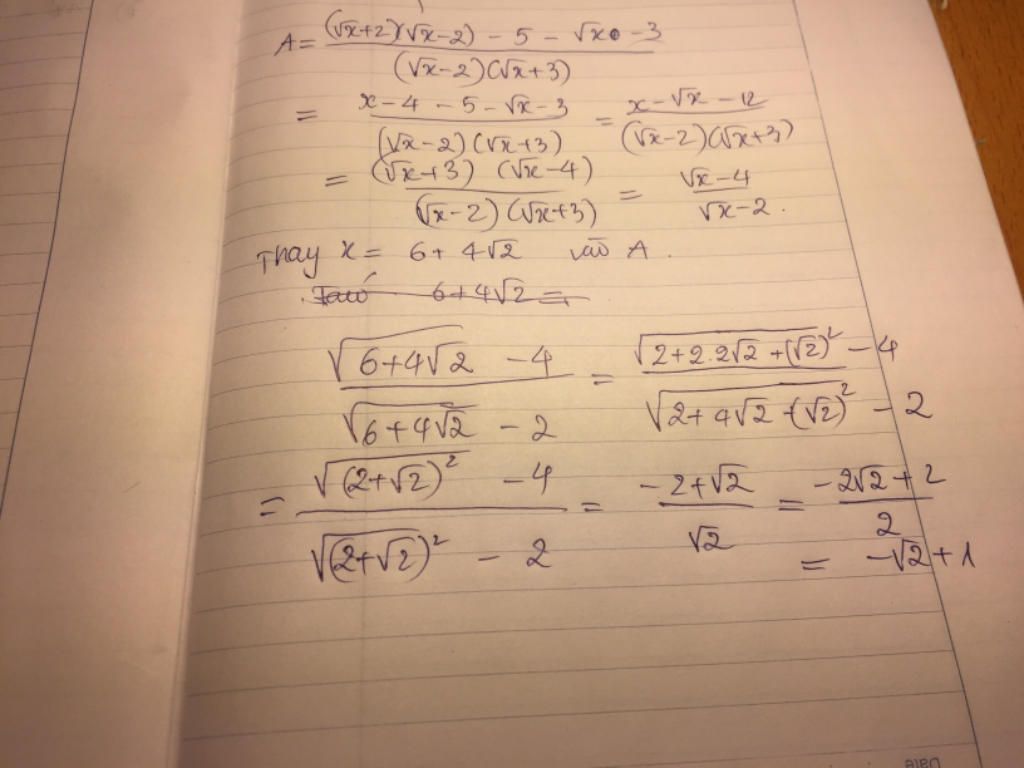 A = \frac{(√x+2)(√x-2) - 5 - √x - 3}{(√x-2)(√x+3)}
= \frac{x-4-5-√x-3}{(√x-2)(√x+3)} = \frac{x-√x-12}{(√x-2)(√x+3)}
= \frac{(√x+3)(√x-4)}{(√x-2)(√x+3)} = \frac{√x-4}{√x-2}.
Thay x = 6+4√2 vào A.
6+4√2 =
\frac{\sqrt{6+4√2} - 4}{\sqrt{6+4√2} - 2} = \frac{\sqrt{2+2.2√2+(√2)^2} - 4}{\sqrt{2+4√2+(√2)^2} - 2}
= \frac{\sqrt{(2+√2)^2} - 4}{\sqrt{(2+√2)^2} - 2} = \frac{-2+√2}{√2} = \frac{-2√2+2}{2}
= -√2+1